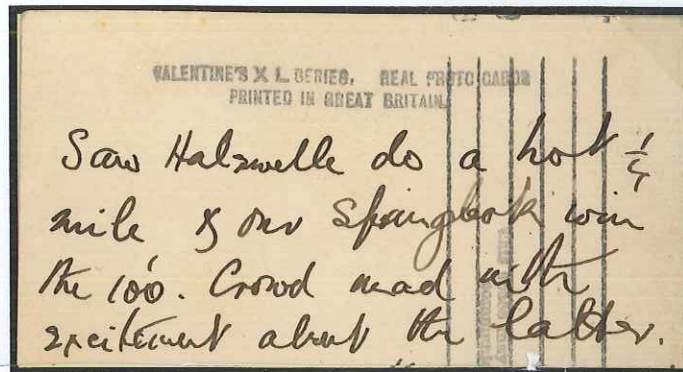 VALENTINE'S X L SERIES. REAL PHOTO CARDS
PRINTED IN GREAT BRITAIN.
Saw Halswelle do a hot ¼
mile & our Springbok win
the 100. Crowd mad with
excitement about the latter.